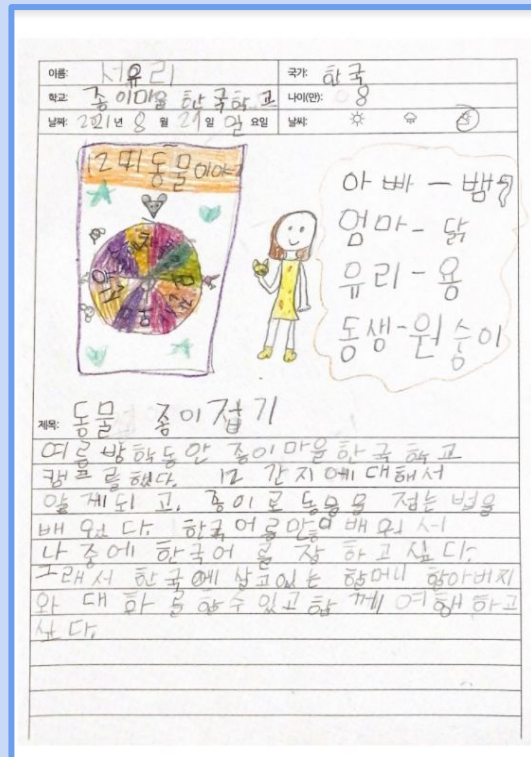 이름: 서유리 국가: 한국
학교: 종이마을 한국학교 나이(만): 8
날짜: 2021년 8월 29일 일요일 날씨:
12띠 동물이야기
아빠 - 뱀
엄마 - 닭
유리 - 용
동생 - 원숭이
제목: 동물 종이접기
여름 방학동안 종이마을 한국학교
캠프를 했다. 12간지에 대해서
알게되고, 종이로 동물을 접는 법을
배웠다. 한국어를 많이 배워서
나중에 한국어를 잘하고 싶다.
그래서 한국에 살고있는 할머니 할아버지
와 대화를 할수있고 함께 여행하고
싶다.